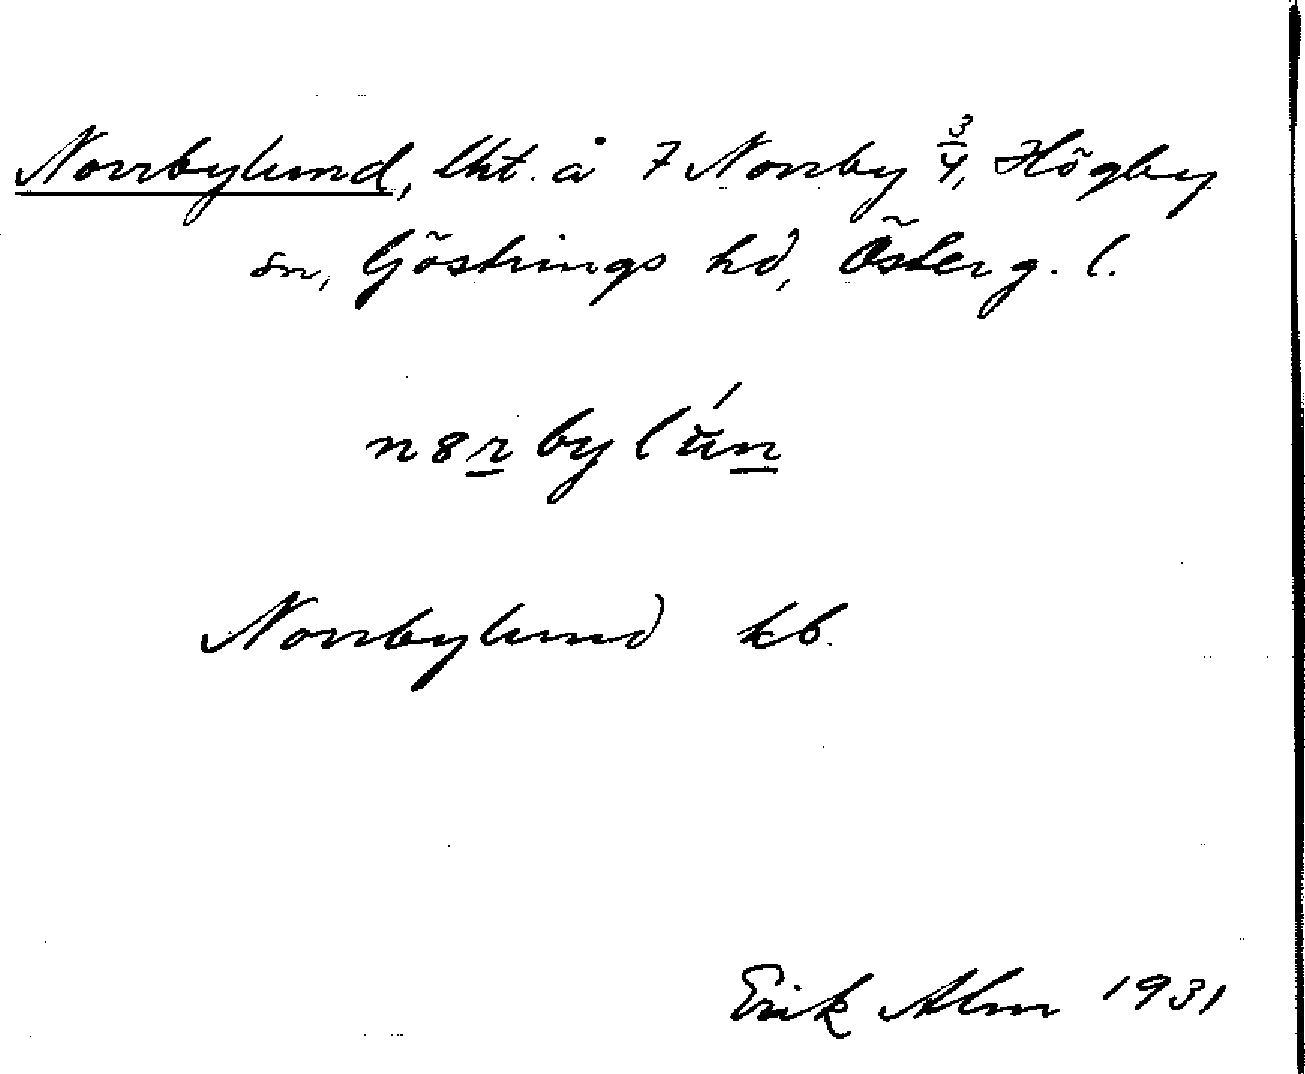 Norrbylund, lht. å 7 Norrby 3/4, Högby
sn, Göstrings hd, Österg. l.
n8rbylún
Norrbylund kb.
Erik Alm 1931